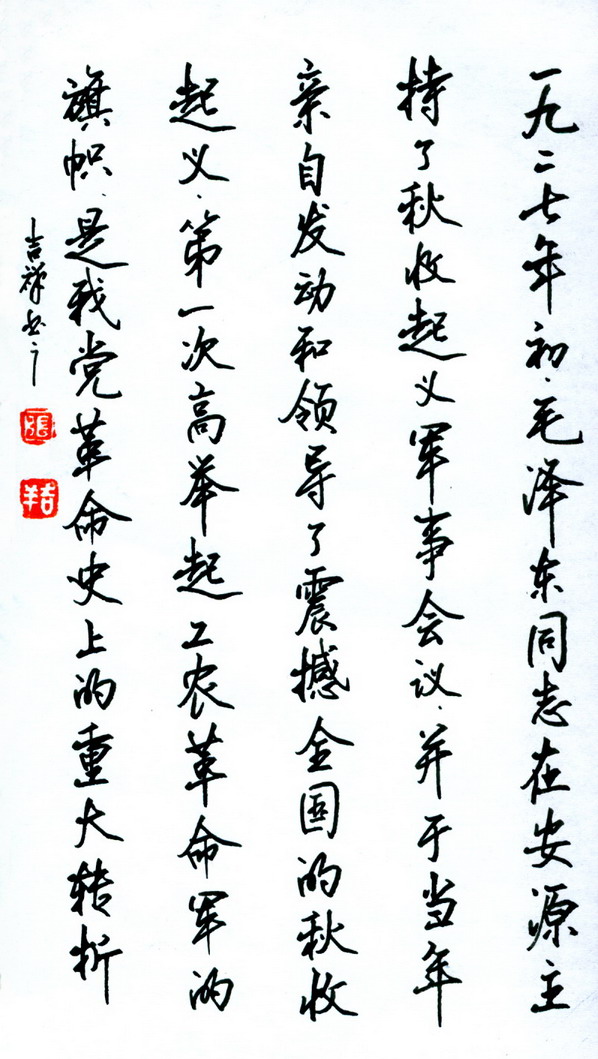 一九二七年初、毛泽东同志在安源主
持了秋收起义军事会议、并于当年
亲自发动和领导了震撼全国的秋收
起义、第一次高举起工农革命军的
旗帜、是我党革命史上的重大转折
吉祥书
張
吉羊